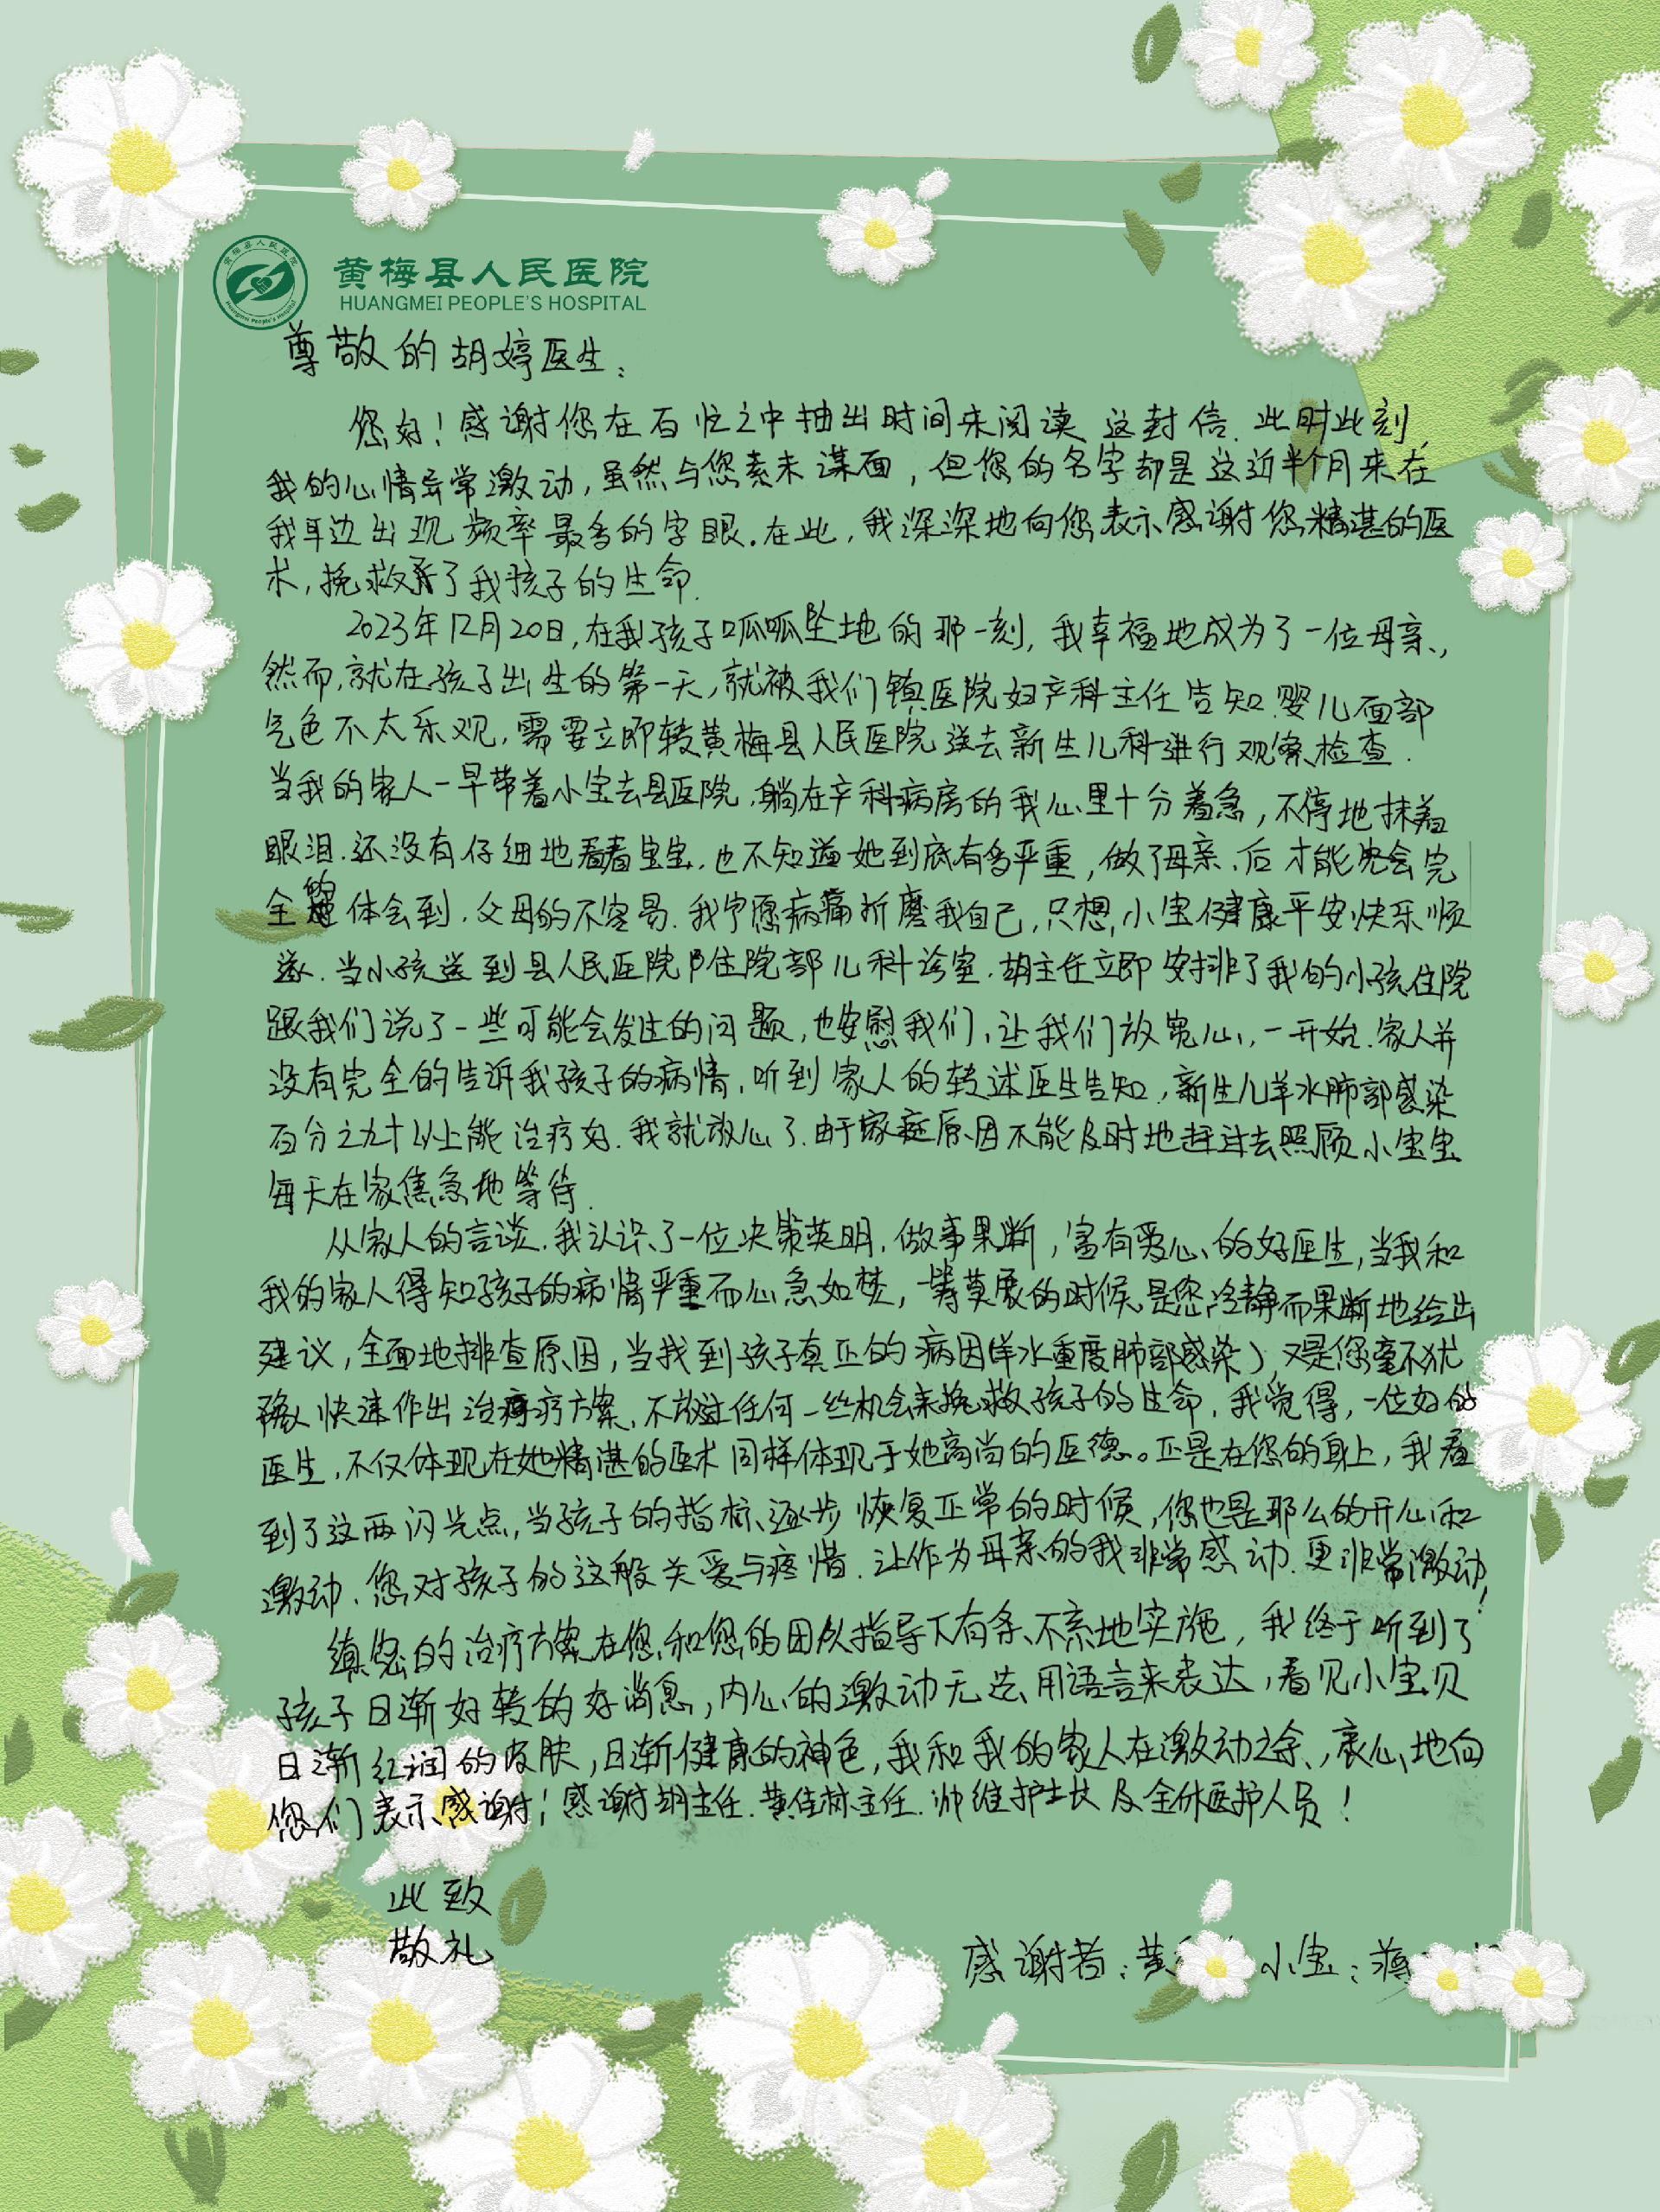 黄梅县人民医院
HUANGMEI PEOPLE'S HOSPITAL
黄梅县人民医院
Huangmei People's Hospital
尊敬的胡婷医生:
您好!感谢您在百忙之中抽出时间来阅读这封信.此时此刻,
我的心情异常激动,虽然与您素未谋面,但您的名字却是这近半个月来在
我耳边出现频率最多的字眼.在此,我深深地向您表示感谢您精湛的医
术,挽救了我孩子的生命.
2023年12月20日,在我孩子呱呱坠地的那一刻,我幸福地成为了一位母亲,
然而,就在孩子出生的第一天,就被我们镇医院妇产科主任告知.婴儿面部
气色不太乐观,需要立即转黄梅县人民医院送去新生儿科进行观察、检查.
当我的家人一早带着小宝去县医院,躺在产科病房的我心里十分着急,不停地抹着
眼泪.还没有仔细地看看宝宝.也不知道她到底有多严重,做了母亲后才能完
全的体会到.父母的不容易.我宁愿病痛折磨我自己,只想小宝健康平安快乐顺
遂.当小孩送到县人民医院住院部儿科诊室.胡主任立即安排了我的小孩住院
跟我们说了一些可能会发生的问题,也安慰我们,让我们放宽心,一开始.家人并
没有完全的告诉我孩子的病情,听到家人的转述医生告知,新生儿羊水肺部感染
百分之九十以上能治疗好.我就放心了.由于家庭原因不能及时地赶过去照顾小宝宝
每天在家焦急地等待.
从家人的言谈.我认识了一位决策英明,做事果断,富有爱心的好医生,当我和
我的家人得知孩子的病情严重而心急如焚,一筹莫展的时候,是您冷静而果断地给出
建议,全面地排查原因,当找到孩子真正的病因(羊水重度肺部感染),又是您毫不犹
豫快速作出治疗方案,不放过任何一丝机会来挽救孩子的生命,我觉得,一位好的
医生,不仅体现在她精湛的医术同样体现于她高尚的医德。正是在您的身上,我看
到了这两闪光点,当孩子的指标逐步恢复正常的时候,您也是那么的开心和
激动.您对孩子的这般关爱与疼惜.让作为母亲的我非常感动.更非常激动!
缜密的治疗方案在您和您的团队指导下有条不紊地实施,我终于听到了
孩子日渐好转的好消息,内心的激动无法用语言来表达,看见小宝贝
日渐红润的皮肤,日渐健康的神色,我和我的家人在激动之余,衷心地向
您们表示感谢!感谢胡主任.黄佳林主任.帅维护士长及全体医护人员!
此致
敬礼
感谢者:黄 小宝:蒋